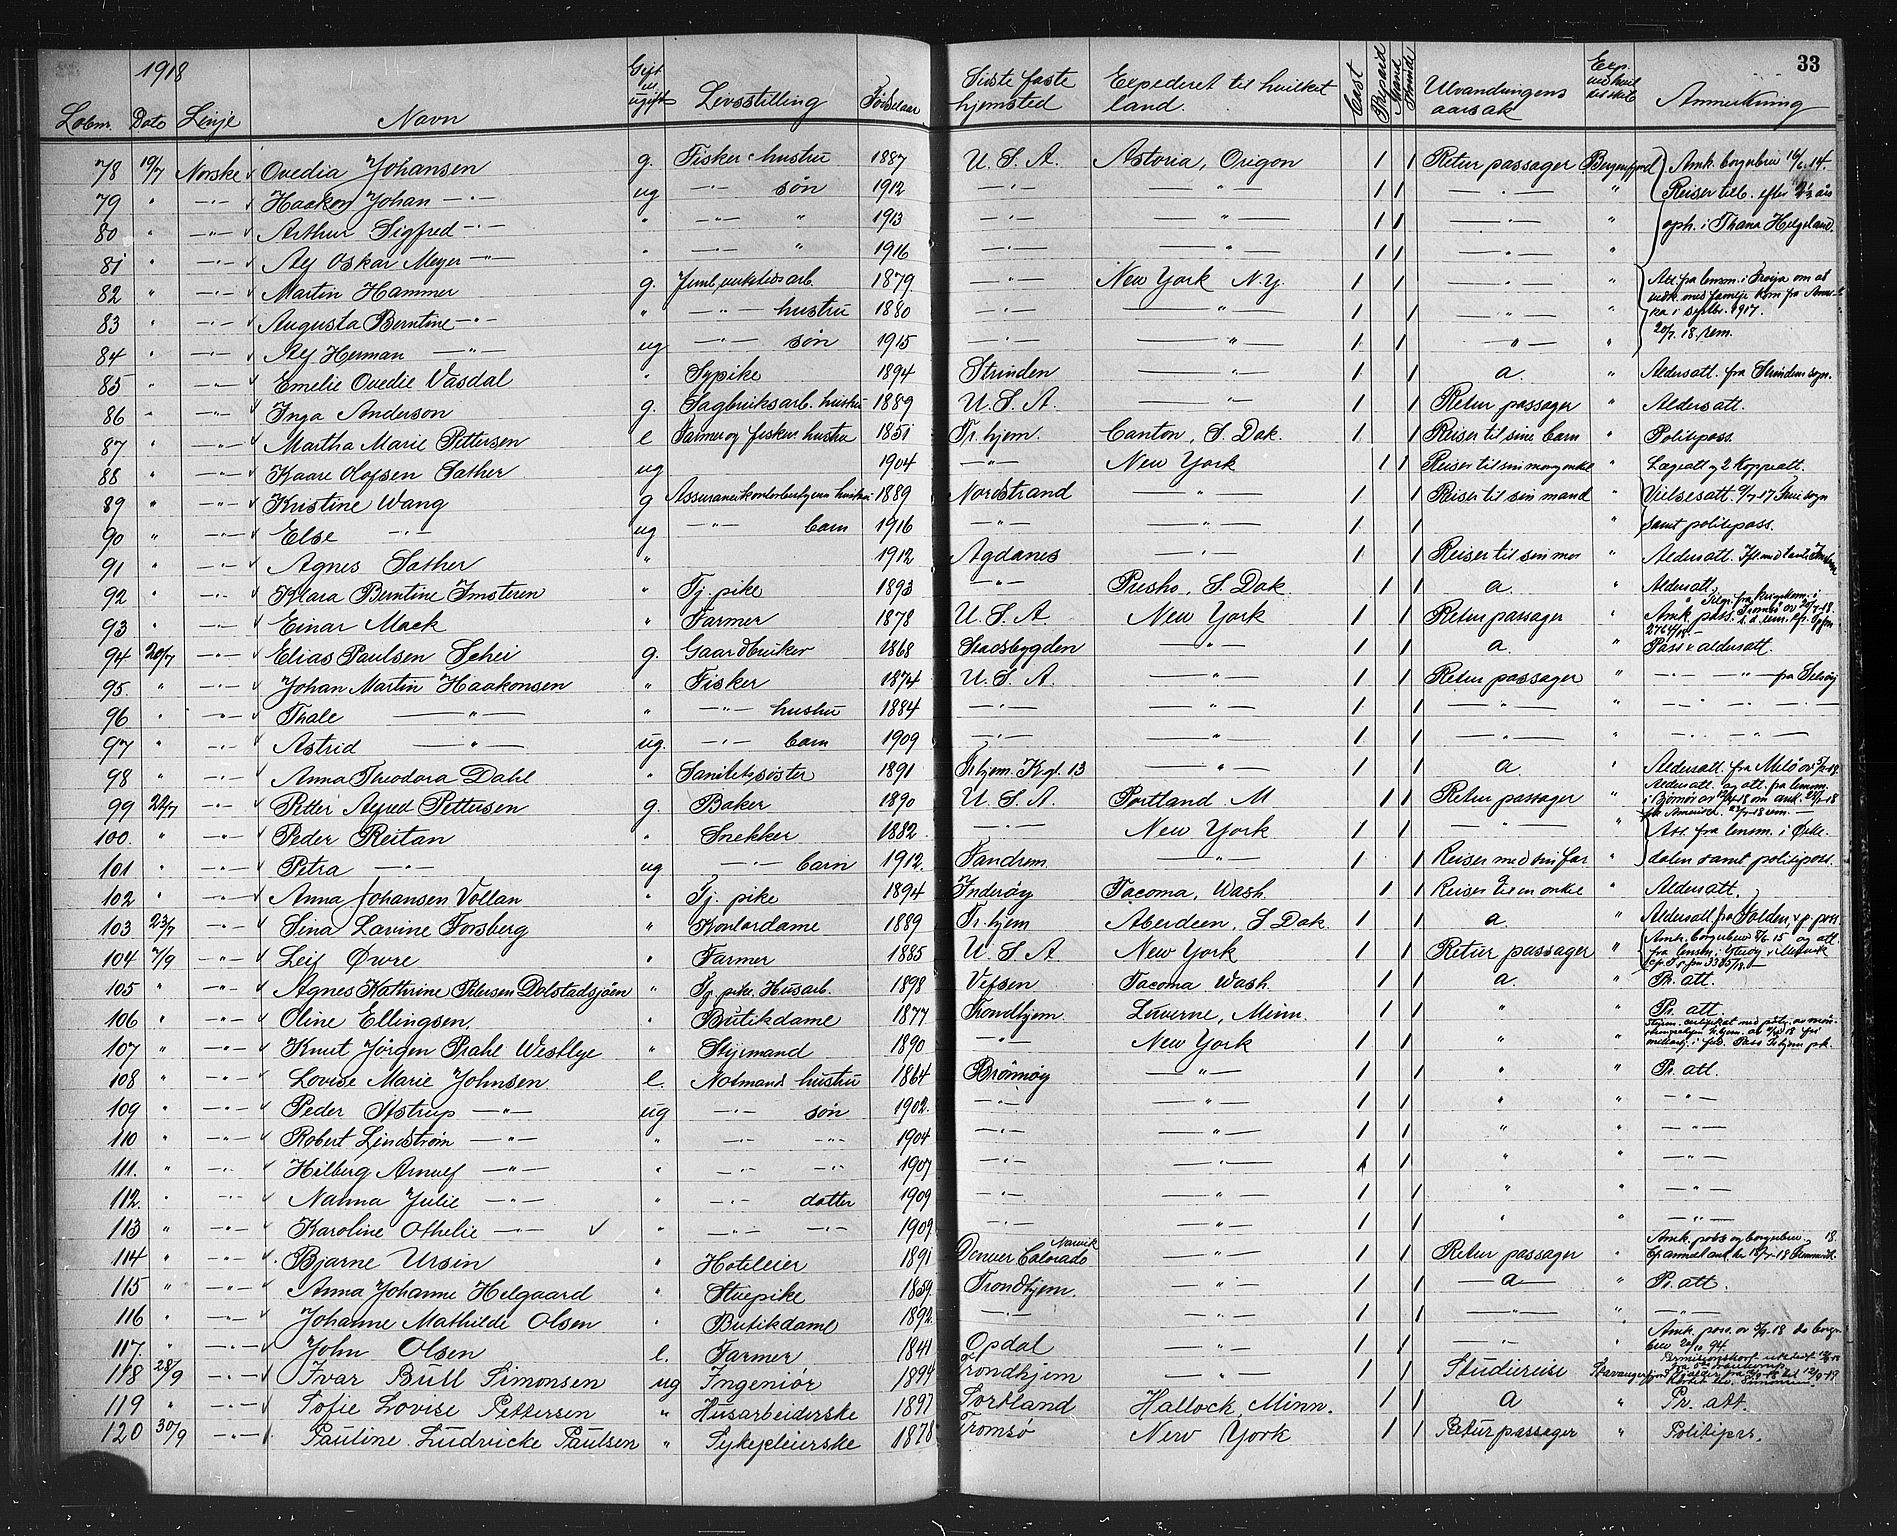 33
1918
Løbnr. Dato Linje Navn Gift el. ugift Livsstilling Fødselsaar Sidste faste hjemsted Expederet til hvilket land. Utvandringens aarsak Exp. med hvilket skib Anmerkning
78 19/7 Norske Ovedia Johansen g. Fisker hustru 1887 U.S.A. Astoria, Origon 1 1 Retur passager Bergensfjord Amk. borgerbrev 16/6 14.
79 " -"- Haakon Johan -"- ug -"- søn 1912 -"- -"- 1 1 -"- " Reiser tilb. efter 2½ års
80 " -"- Arthur Sigfred -"- " -"- " 1913 -"- -"- 1 1 -"- " oph. i Thana Helgeland
81 " -"- Alf Oskar Meyer -"- " -"- " 1916 -"- -"- 1 1 -"- "
82 " -"- Martin Hammer g. 1879 -"- New York N.Y. 1 1 -"- " Att. fra lensm. i Frøija om at
83 " -"- Augusta Berntine -"- " -"- hustru 1880 -"- -"- 1 1 -"- " vedk. med familje kom fra Amerika i septbr. 1917.
84 " -"- Alf Herman -"- ug -"- søn 1915 -"- 1 1 -"- " 20/7 18. rem.
85 " -"- Emelie Ovedie Vasdal " Sypike 1894 Strinden -"- 1 1 a. " Aldersatt. fra Strinden sogn.
86 " -"- Inga Anderson g. Sagbruksarb. hustru 1889 U.S.A. -"- 1 1 Retur passager " Aldersatt.
87 " -"- Martha Marie Pettersen e Farmer og fisker hustru 1851 Tr.hjem. Canton, S. Dak. 1 1 Reiser til sine barn " Politipass.
88 " -"- Kaare Olofsen Sather ug 1904 -"- New York 1 1 Reiser til sin mor og onkel " Lægeatt og 2 Koppeatt.
89 " -"- Kristine Wang g hustru 1889 Nordstrand -"- 1 1 Reiser til sin mand " Vielsesatt.
90 " -"- Else -"- ug -"- barn 1916 -"- -"- 1 1 " samt politipass.
91 " -"- Agnes Sather " 1912 Agdanes -"- 1 1 Reiser til sin mor " Aldersatt.
92 " -"- Klara Berntine Imsteren " Tj. pike 1893 -"- Presho, S. Dak. 1 1 a. " Aldersatt.
93 " -"- Einar Mack " Farmer 1878 U.S.A. New York 1 1 Retur passager " Amk. pass.
94 20/7 -"- Elias Paulsen Schei g. Gaardbruker 1868 Stadsbygden -"- 1 1 a. " Pass & aldersatt.
95. " -"- Johan Martin Haakonsen " Fisker 1874 U.S.A. -"- 1 1 Retur passager " -"- -"- fra Selsøy
96 " -"- Thale -"- " -"- hustru 1884 -"- -"- 1 1 -"- " -"-
97 " -"- Astrid -"- ug. -"- barn 1909 -"- -"- 1 1 -"- " -"-
98 " -"- Anna Theodora Dahl " Sanitetssøster 1891 Tr.hjem. Kgl. 13 -"- 1 1 a. " Aldersatt. fra
99 22/7 -"- Petter Alfred Pettersen g. Baker 1890 U.S.A. Portland. M 1 1 Retur passager " Aldersatt. og att. fra lensm.
100. " -"- Peder Reitan " Snekker 1882 -"- New York 1 1 -"- " Att. fra lensm. i Ørke-
101 " -"- Petra -"- ug -"- barn 1912. Fandrem. -"- 1 1 Reiser med sin far " dalen samt politipass.
102 " -"- Anna Johansen Vollan " Tj. pike 1894 Inderøy Tacoma, Wash. 1 1 Reiser til en onkel " Aldersatt.
103 23/7 -"- Sina Lavine Forsberg " Kontordame 1889 Tr.hjem Aberdeen, S Dak. 1 1 a. " Aldersatt. fra
104 7/9 -"- Leif Øvre " Farmer 1885 U.S.A New York 1 1 Retur passager " Amk. borgerbrev 15 og att. fra lensm. i Ytterøy
105 " -"- Agnes Kathrine Petersen Dolstadsjøen " Tj. pike. Husarb. 1898 Vefsen Tacoma Wash. 1 1 a. " Pr. att.
106 " -"- Oline Ellingsen. " Butikdame 1877 Trondhjem Luverne, Minn. 1 1 " " Pr. att.
107 " -"- Knut Jörgen Prahl Westbye " Styrmand 1890 -"- New York 1 1 " "
108 " -"- Lovise Marie Johnsen e. Notmand hustru 1864 Brønnøy -"- 1 1 " " Pr. att.
109 " -"- Peder Astrup -"- ug -"- søn 1902. -"- -"- 1 1 " -"-
110 " -"- Robert Lindstrøm -"- " -"- -"- 1904 -"- -"- 1 1 " " -"-
111. " -"- Hilberg Arnulf -"- " -"- -"- 1907 -"- -"- 1 1 " " -"-
112. " -"- Nanna Julie -"- " -"- datter 1909 -"- -"- 1 1 " " -"-
113 " -"- Karoline Othelie -"- " -"- -"- 1909 -"- -"- 1 1 " " -"-
114 " -"- Bjarne Ursin " Hoteleier 1891 Denver Colorado Narvik -"- 1 1 Retur passager " Amk. pass og borgerbrev
115 " -"- Anna Johanne Helgaard " Stuepike 1859 Trondhjem. -"- 1 1 -a- " Pr. att.
116 " -"- Johanne Mathilde Olsen " Butikdame 1892 -"- -"- 1 1 -"- " -"-
117. " -"- John Olsen e. Farmer 1841 Opdal -"- 1 1 -"- " Amk. pass.
118 28/9 -"- Ivar Bull Simonsen ug Ingeniør 1894 Trondhjem -"- 1 1 Studiereise Stavangerfjord
119 " -"- Sofie Lovise Pettersen " Husarbeiderske 1897 Sortland Hallock, Minn. 1 1 a " Pr. att.
120 30/9 -"- Pauline Ludvicke Paulsen " Sykepleierske 1878 Tromsø New York 1 1 Returpassager " Politipas.